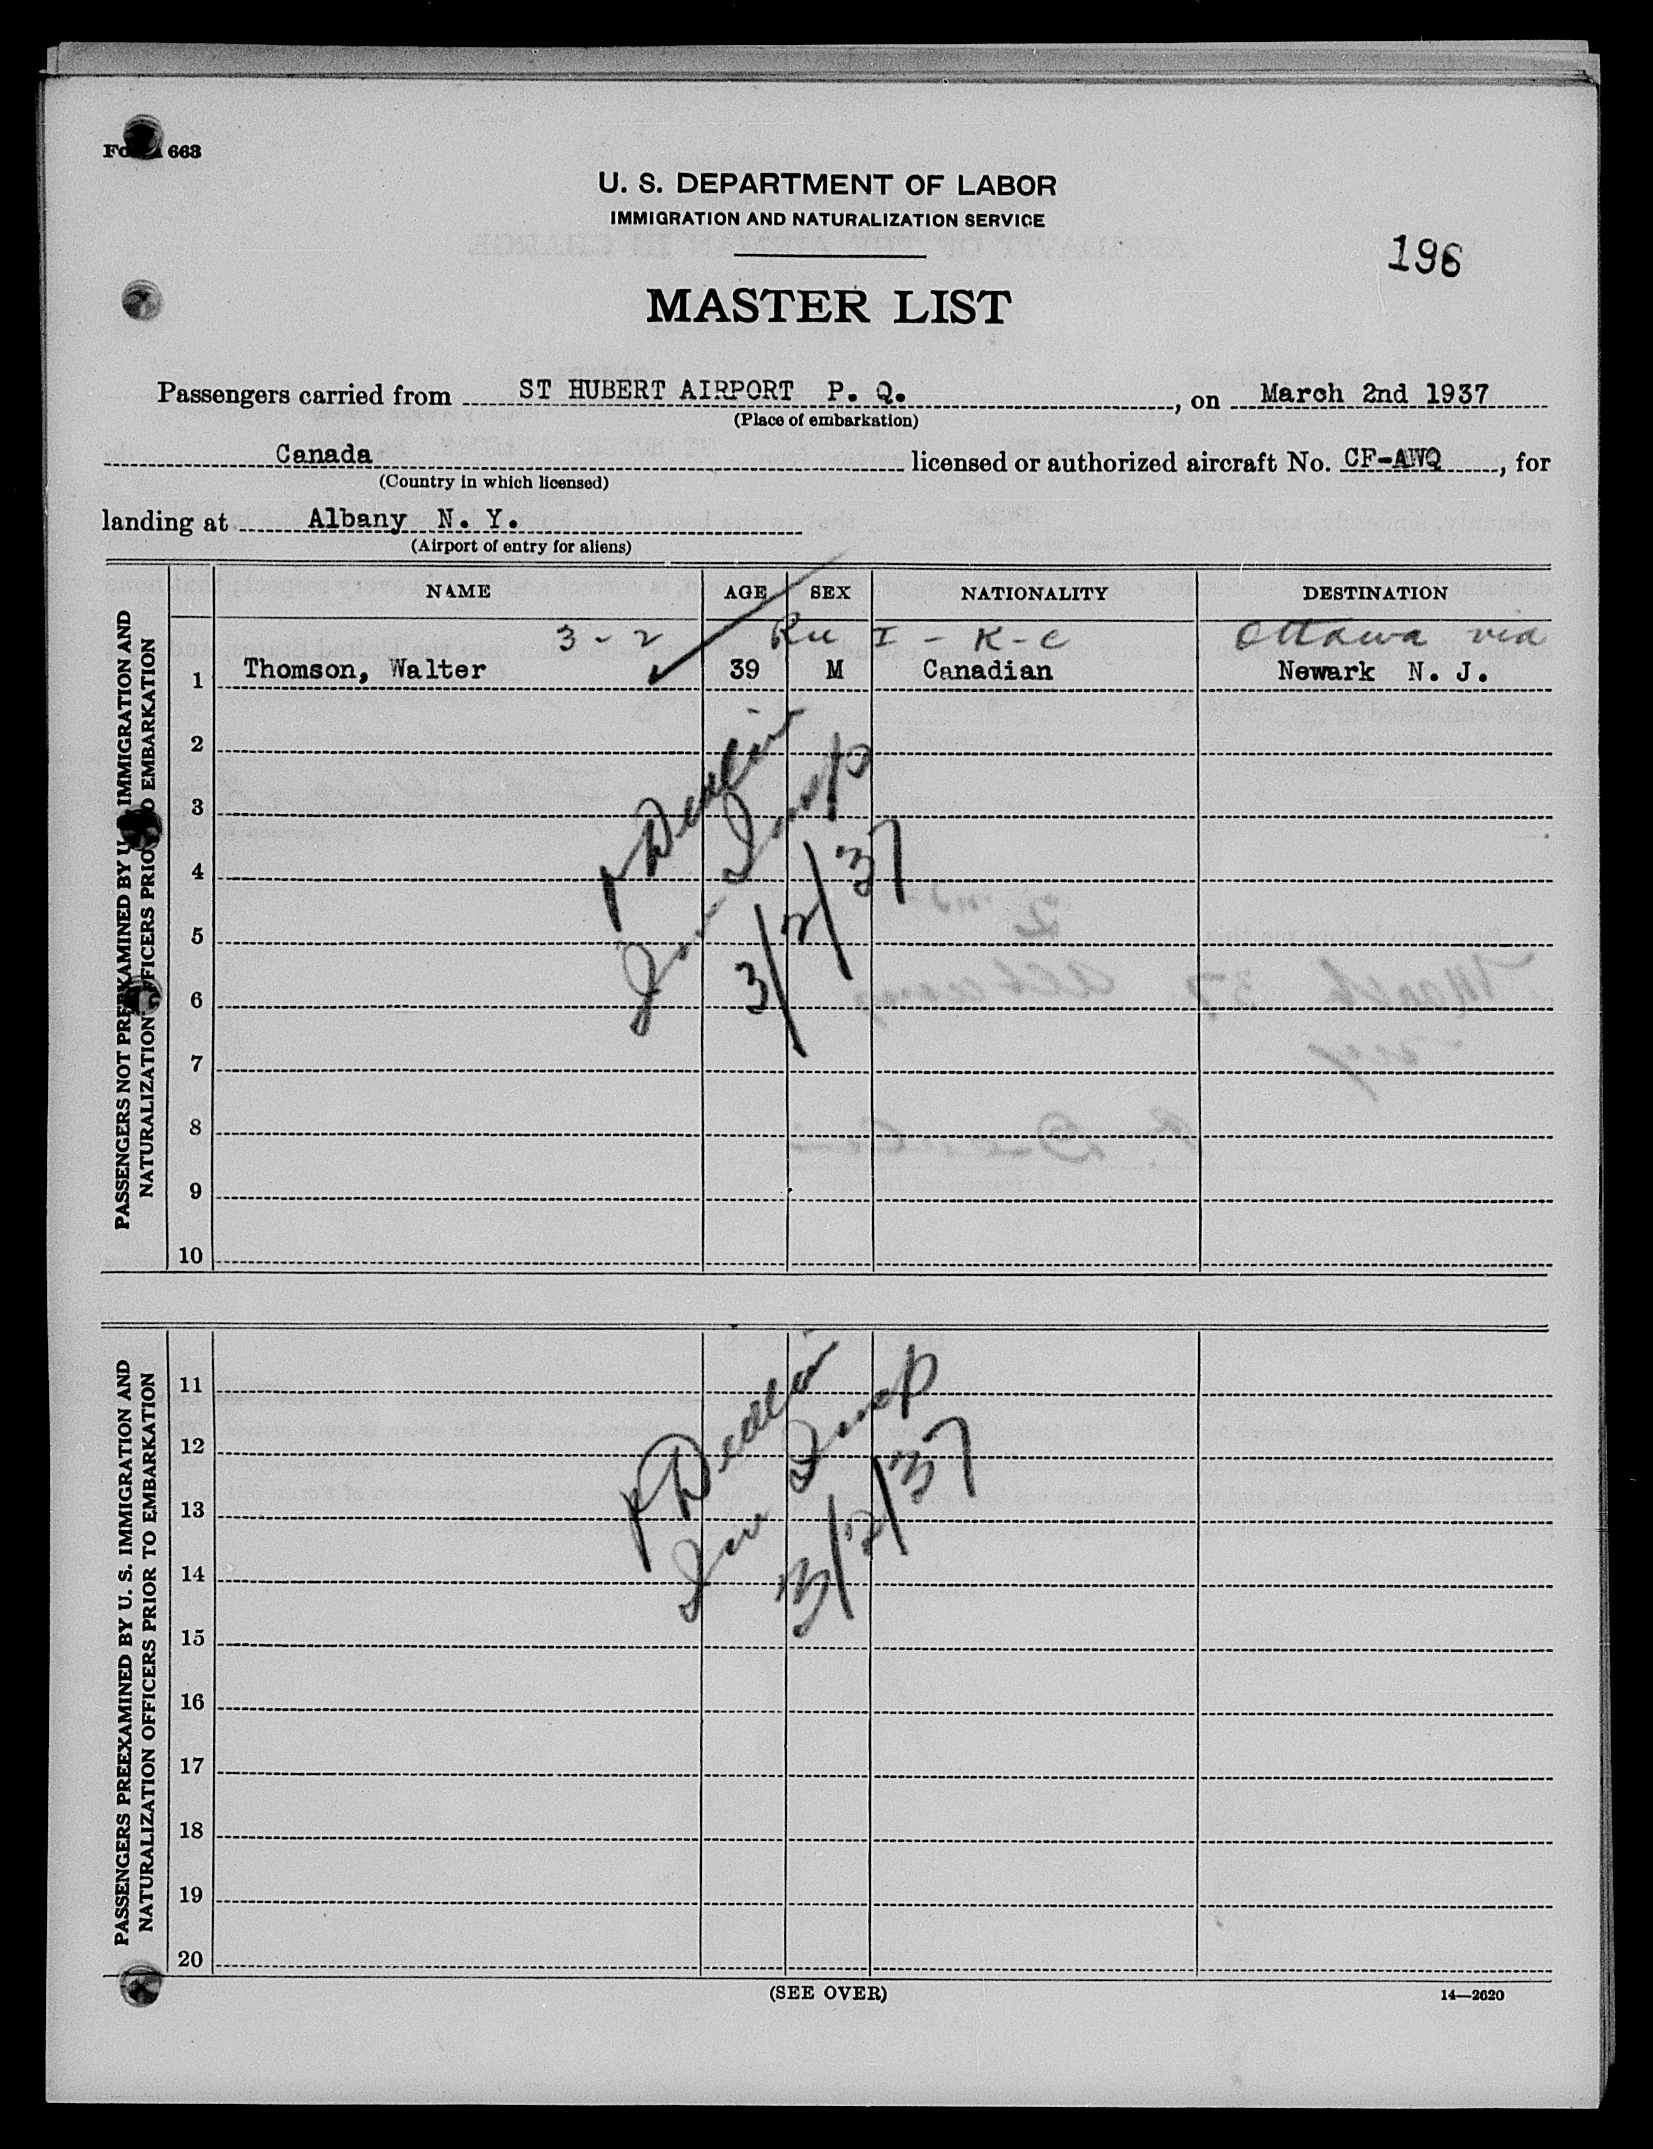 663
U. S. DEPARTMENT OF LABOR
IMMIGRATION AND NATURALIZATION SERVICE
196
MASTER LIST
Passengers carried from ST HUBERT AIRPORT P. Q., on March 2nd 1937
(Place of embarkation)
Canada licensed or authorized aircraft No. CF-AWQ, for
(Country in which licensed)
landing at Albany N. Y.
(Airport of entry for aliens)
NAME AGE SEX NATIONALITY DESTINATION
3 - 2 I - K - C Ottawa via
1 Thomson, Walter 39 M Canadian Newark N. J.
2
3
4
5
6
7
8
9
10
3/2/37
PASSENGERS NOT PREEXAMINED BY U. S. IMMIGRATION AND
NATURALIZATION OFFICERS PRIOR TO EMBARKATION
11
12
13
14
15
16
17
18
19
20
3/2/37
PASSENGERS PREEXAMINED BY U. S. IMMIGRATION AND
NATURALIZATION OFFICERS PRIOR TO EMBARKATION
(SEE OVER)
14—2620